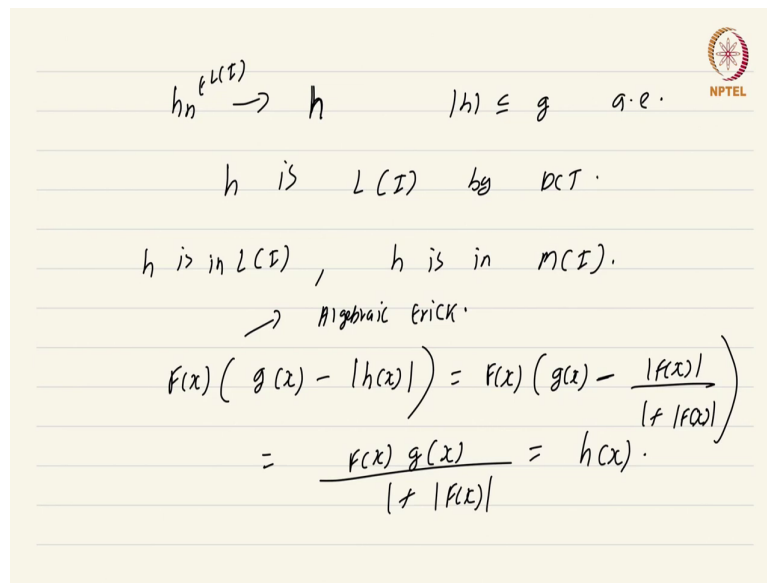 NPTEL
hₙ ∈ L(I) → h |h| ≤ g a.e.
h is L(I) by DCT.
h is in L(I), h is in m(I).
→ Algebraic trick.
F(x) ( g(x) - |h(x)| ) = F(x) ( g(x) - |F(x)| / 1 + |F(x)| )
= F(x) g(x) / 1 + |F(x)| = h(x).